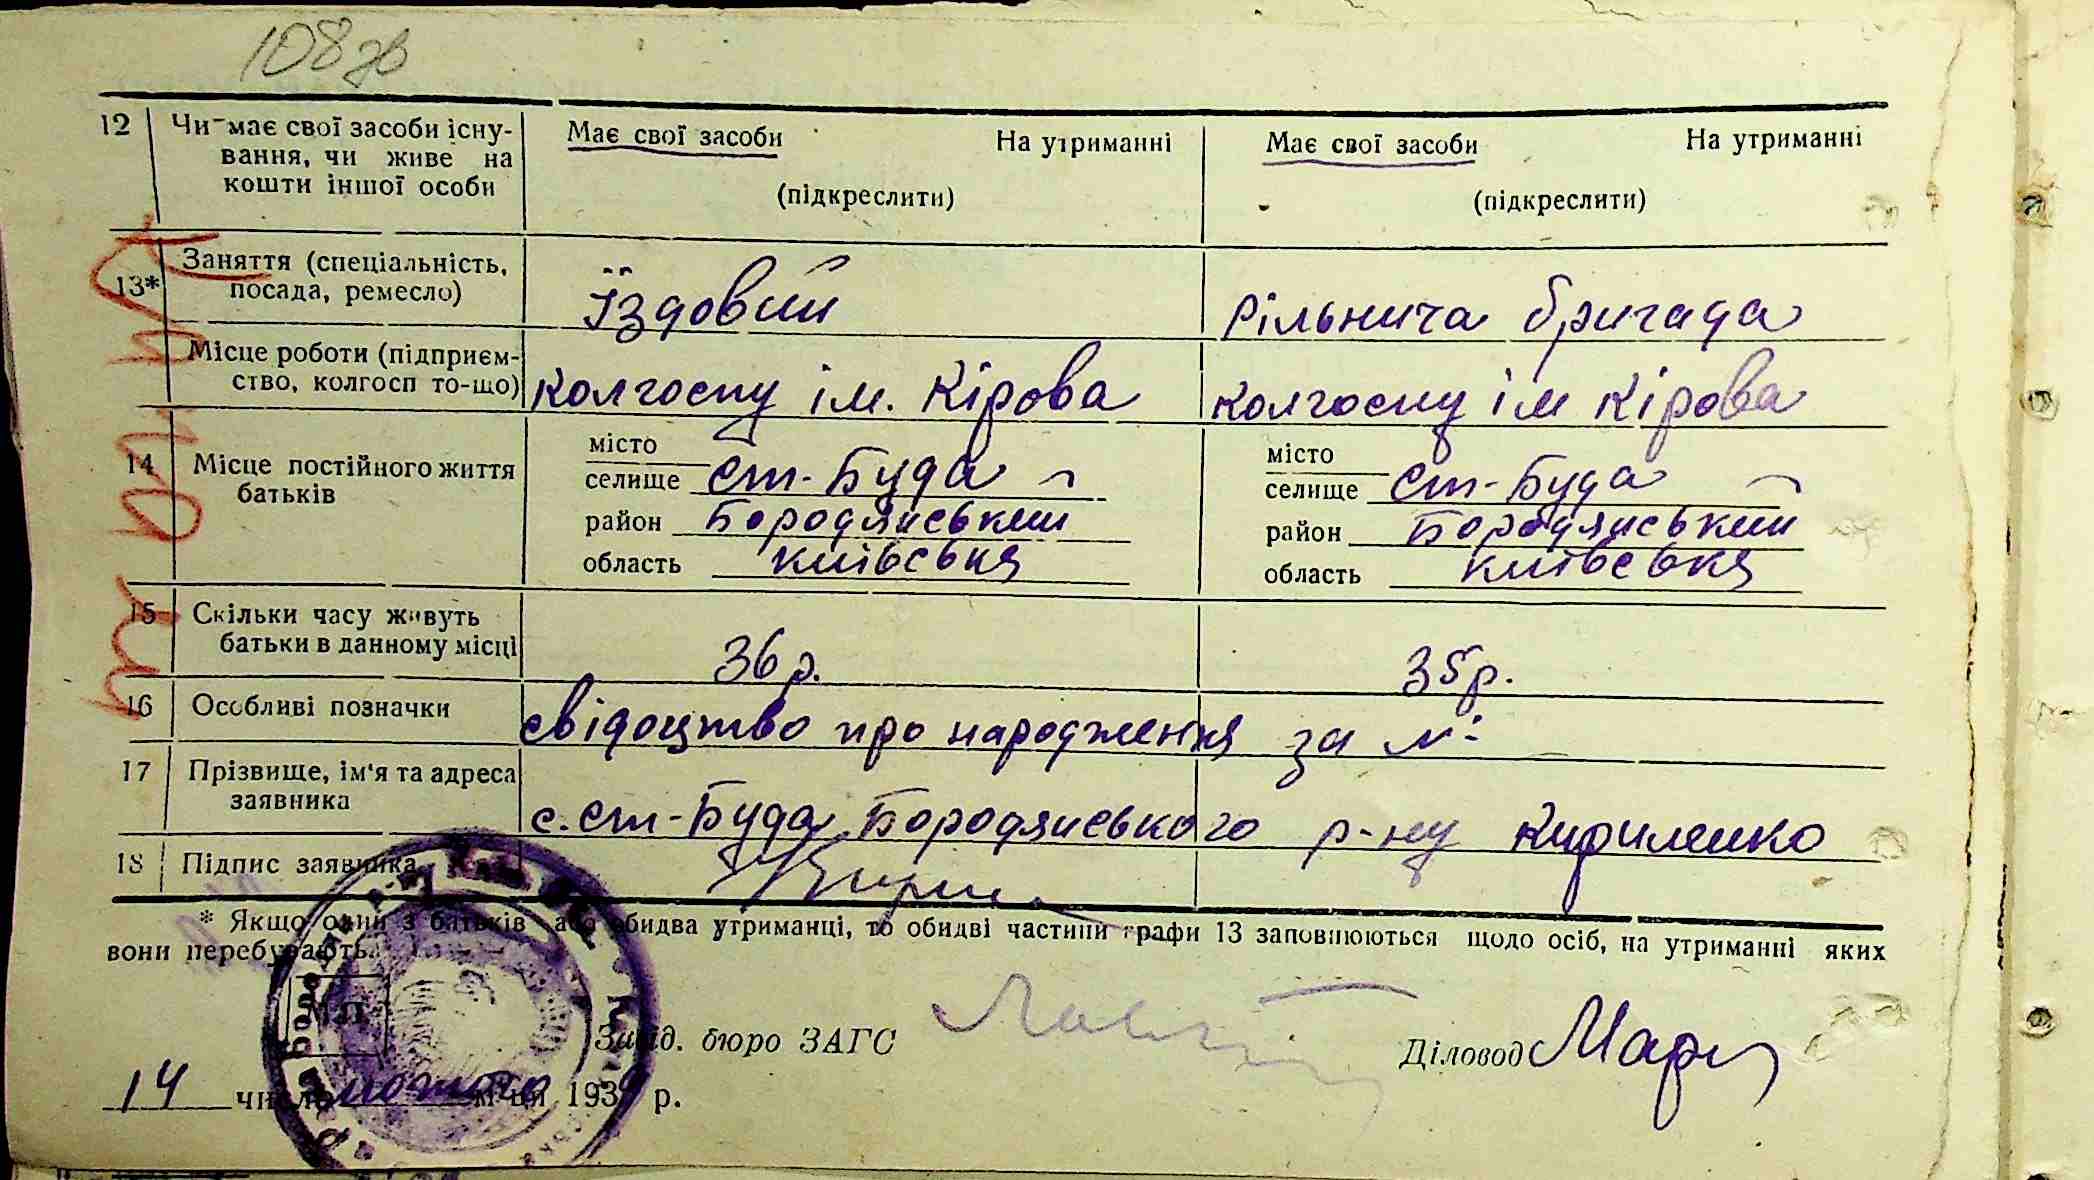 108 зв
12 Чи має свої засоби існу- Має свої засоби На утриманні Має свої засоби На утриманні
вання, чи живе на
кошти іншої особи (підкреслити) (підкреслити)
13* Заняття (спеціальність,
посада, ремесло) їздовий рільнича бригада
Місце роботи (підприєм-
ство, колгосп то-що) колгоспу ім. Кірова колгоспу ім Кірова
14 Місце постійного життя
батьків
місто місто
селище ст-Буда селище ст-Буда
район Бородянський район Бородянський
область київська область київська
15 Скільки часу живуть
батьки в данному місці 36 р. 35 р.
16 Особливі позначки свідоцтво про народження за №
17 Прізвище, ім'я та адреса
заявника с. ст-Буда Бородянського р-ну Кириленко
18 Підпис заявника
* Якщо один з батьків або обидва утриманці, то обидві частини графи 13 заповнюються щодо осіб, на утриманні яких
вони перебувають.
М.П.
Завід. бюро ЗАГС Діловод
14 число лютого м-ця 1939 р.